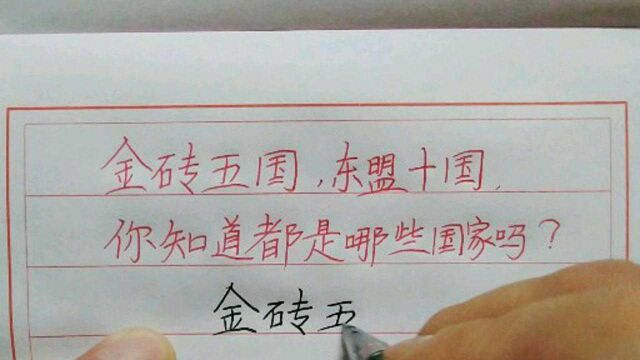 金砖五国,东盟十国,
你知道都是哪些国家吗?
金砖五